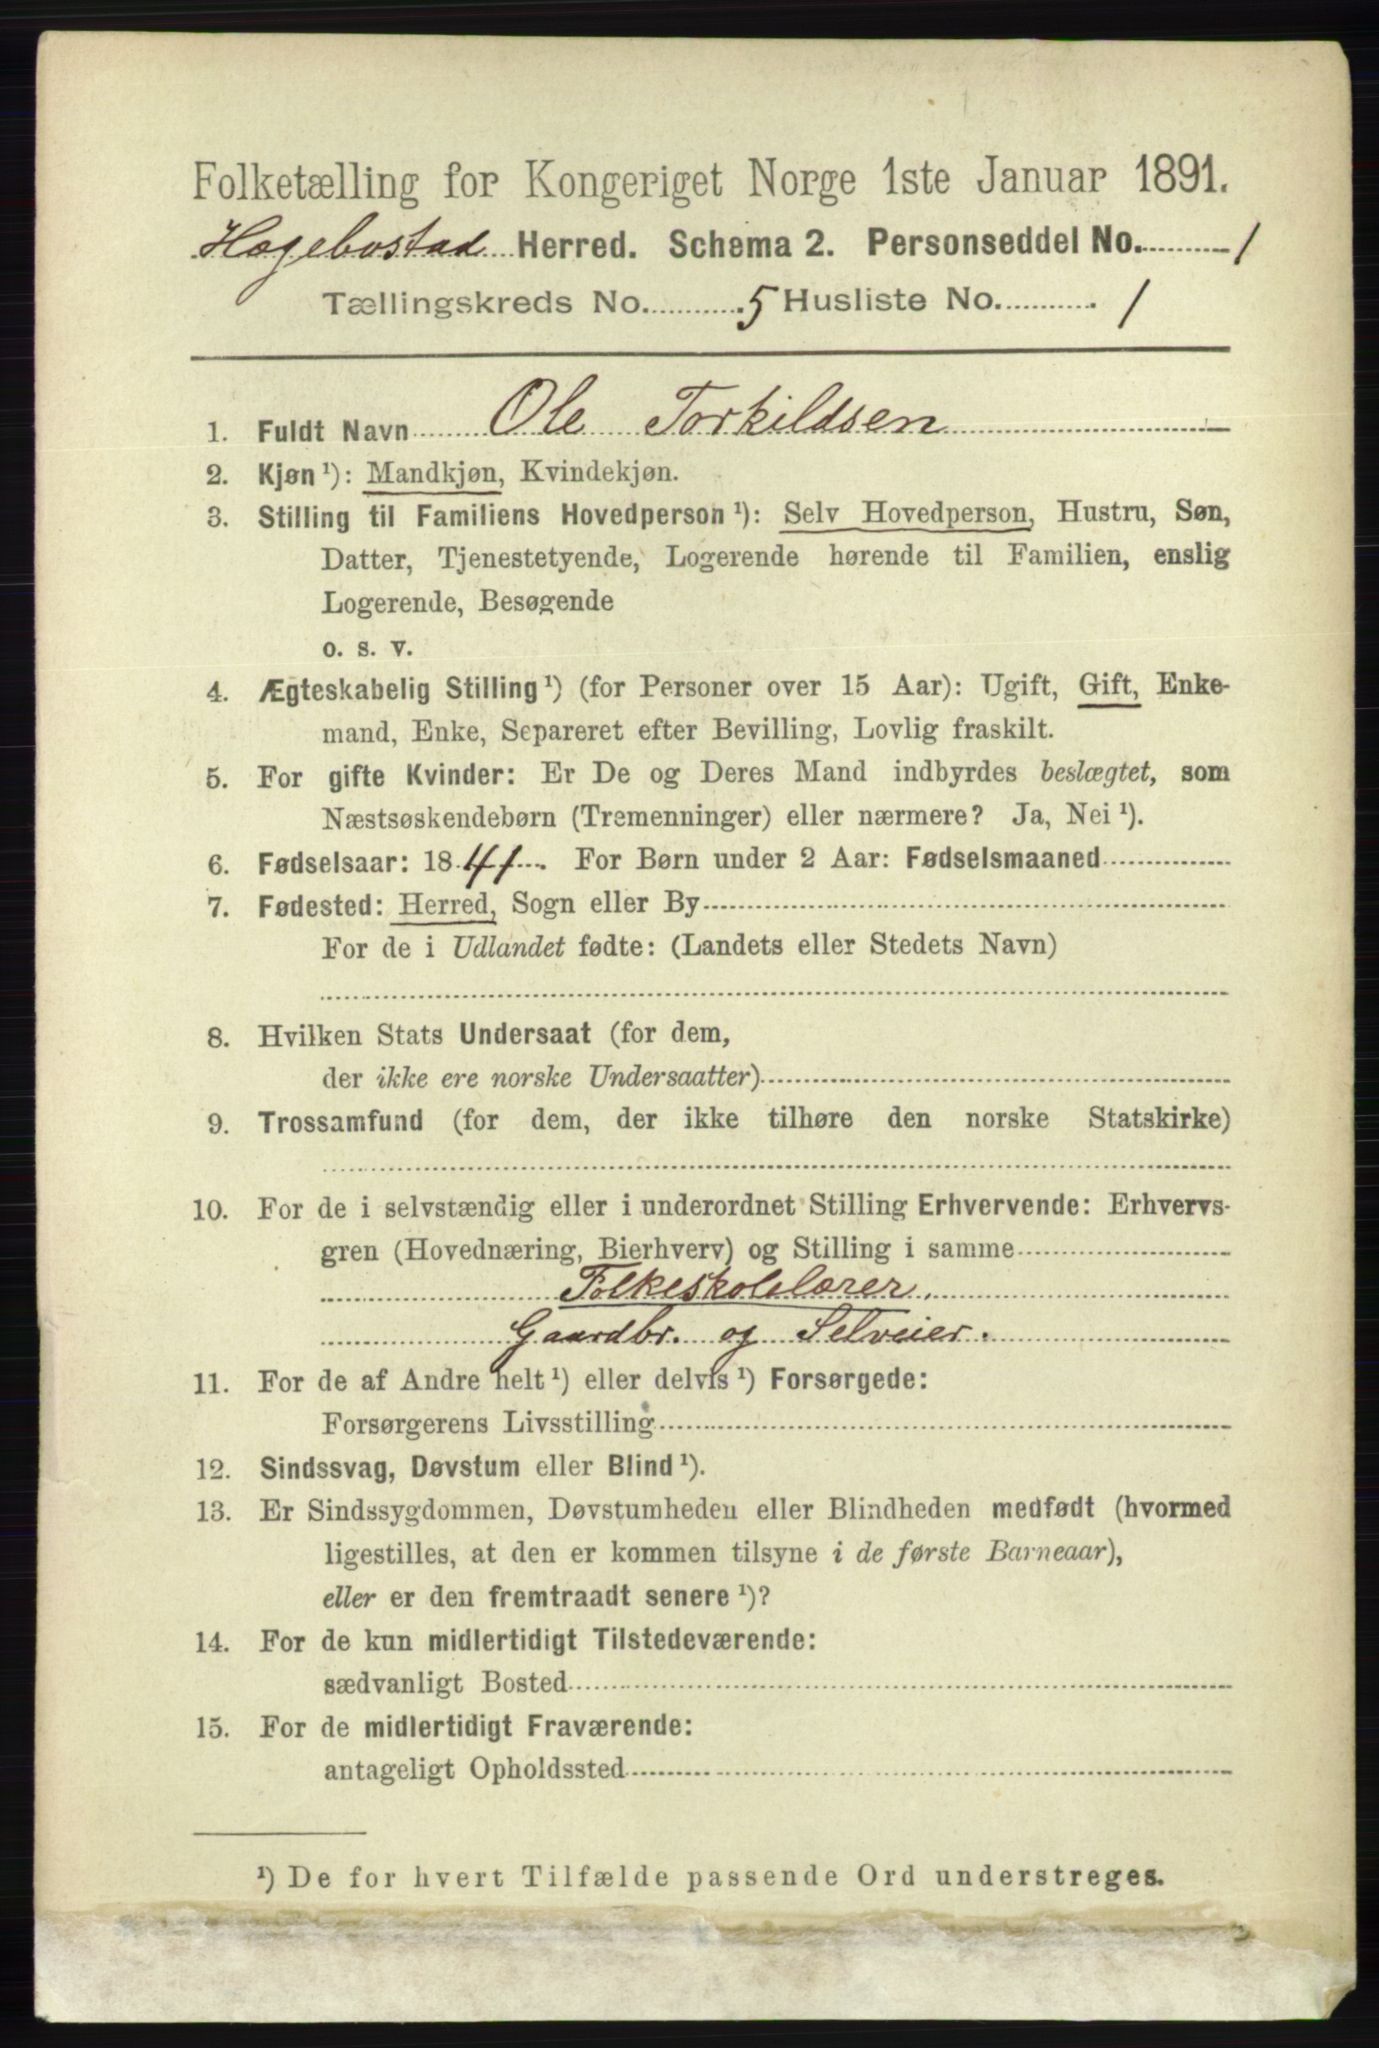 Folketælling for Kongeriget Norge 1ste Januar 1891.
Hægebostad Herred. Schema 2. Personseddel No. 1
Tællingskreds No. 5 Husliste No. 1
1. Fuldt Navn Ole Torkildsen
2. Kjøn ¹): Mandkjøn, Kvindekjøn.
3. Stilling til Familiens Hovedperson ¹): Selv Hovedperson, Hustru, Søn,
Datter, Tjenestetyende, Logerende hørende til Familien, enslig
Logerende, Besøgende
o. s. v.
4. Ægteskabelig Stilling ¹) (for Personer over 15 Aar): Ugift, Gift, Enke-
mand, Enke, Separeret efter Bevilling, Lovlig fraskilt.
5. For gifte Kvinder: Er De og Deres Mand indbyrdes beslægtet, som
Næstsøskendebørn (Tremenninger) eller nærmere? Ja, Nei ¹).
6. Fødselsaar: 1841. For Børn under 2 Aar: Fødselsmaaned
7. Fødested: Herred, Sogn eller By
For de i Udlandet fødte: (Landets eller Stedets Navn)
8. Hvilken Stats Undersaat (for dem,
der ikke ere norske Undersaatter)
9. Trossamfund (for dem, der ikke tilhøre den norske Statskirke)
10. For de i selvstændig eller i underordnet Stilling Erhvervende: Erhvervs-
gren (Hovednæring, Bierhverv) og Stilling i samme
Folkeskolelærer.
Gaardbr. og Selveier.
11. For de af Andre helt ¹) eller delvis ¹) Forsørgede:
Forsørgerens Livsstilling
12. Sindssvag, Døvstum eller Blind ¹).
13. Er Sindssygdommen, Døvstumheden eller Blindheden medfødt (hvormed
ligestilles, at den er kommen tilsyne i de første Barneaar),
eller er den fremtraadt senere ¹)?
14. For de kun midlertidigt Tilstedeværende:
sædvanligt Bosted
15. For de midlertidigt Fraværende:
antageligt Opholdssted
¹) De for hvert Tilfælde passende Ord understreges.